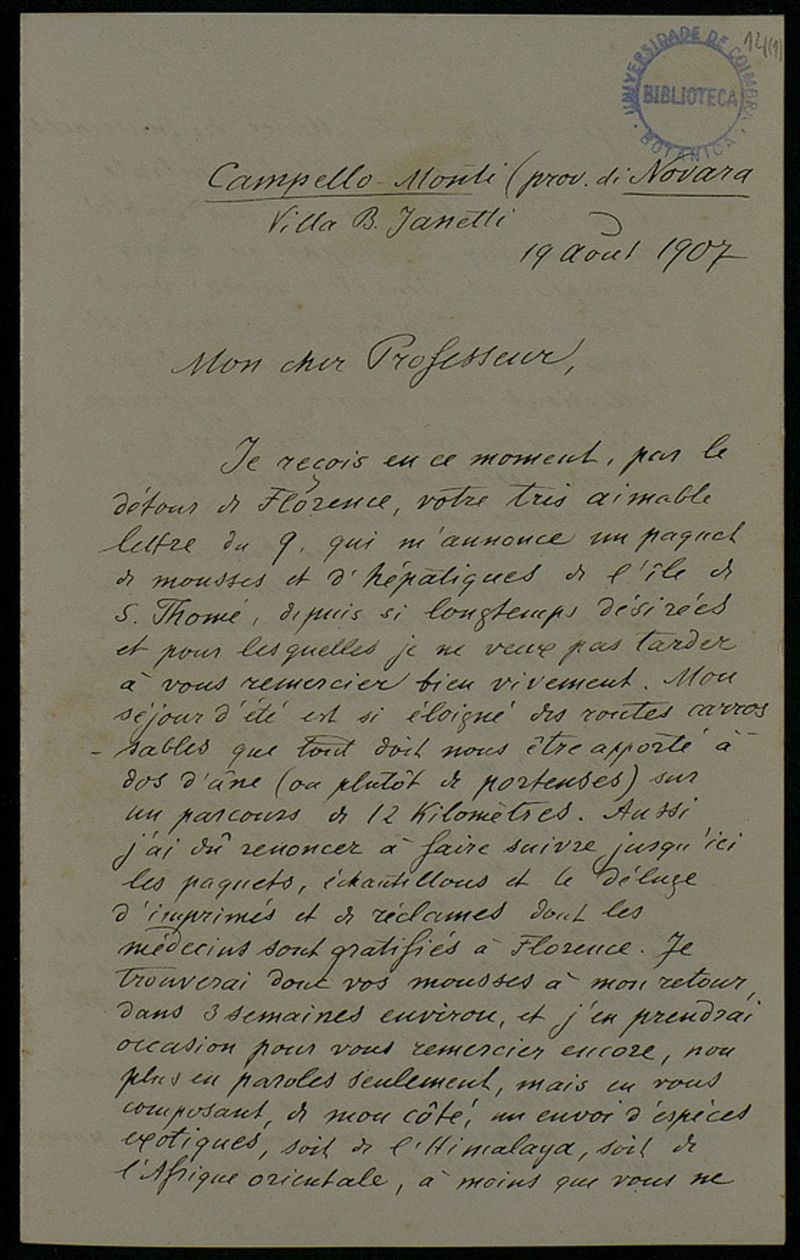 14(1)
UNIVERSIDADE DE COIMBRA
BIBLIOTECA
BOTANICA
Campello-Monti (prov. di Novara
Villa B. Janetti
19 Août 1907
Mon cher Professeur,
Je reçois en ce moment, par le
détour de Florence, votre très aimable
lettre du 9, qui m'annonce un paquet
de mousses et d'hépatiques de l'île de
S. Thomé, depuis si longtemps désirées
et pour lesquelles je ne veux pas tarder
à vous remercier bien vivement. Mon
séjour d'été est si éloigné des routes carros
-sables que tout doit nous être apporté à
dos d'âne (ou plutôt de porteuses) sur
un parcours de 12 Kilomètres. Aussi
j'ai dû renoncer à faire suivre jusqu'ici
les paquets, échantillons et le déluge
d'imprimés et de réclames dont les
médecins sont gratifiés à Florence. Je
trouverai donc vos mousses à mon retour,
dans 3 semaines environ, et j'en prendrai
occasion pour vous remercier encore, non
plus en paroles seulement, mais en vous
composant, de mon côté, un envoi d'espèces
exotiques, soit de l'Himalaya, soit de
l'Afrique orientale, à moins que vous ne